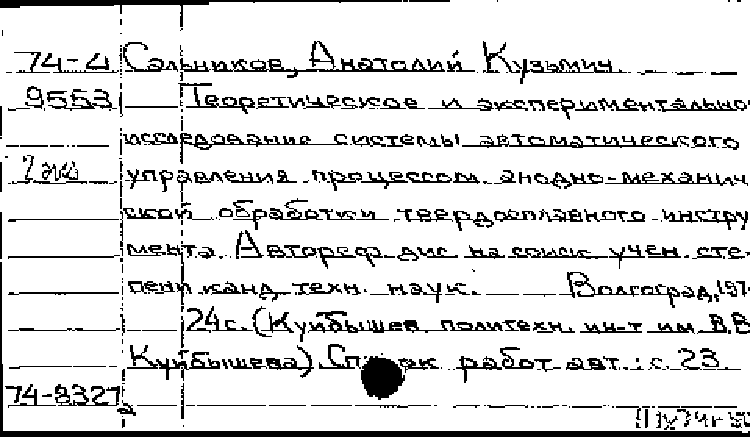 74-4 Сальников, Анатолий Кузьмич.
9553 Теоретическое и экспериментально
исследование системы автоматического
2 экз управления процессом анодно-механич
ской обработки твердосплавного инстру
мента. Автореф. дис. на соиск. учен. сте-
пени канд. техн. наук. Волгоград, 197
24 с. (Куйбышев. политехн. ин-т им. В.В
Куйбышева). Список работ авт.: с. 23.
74-8327